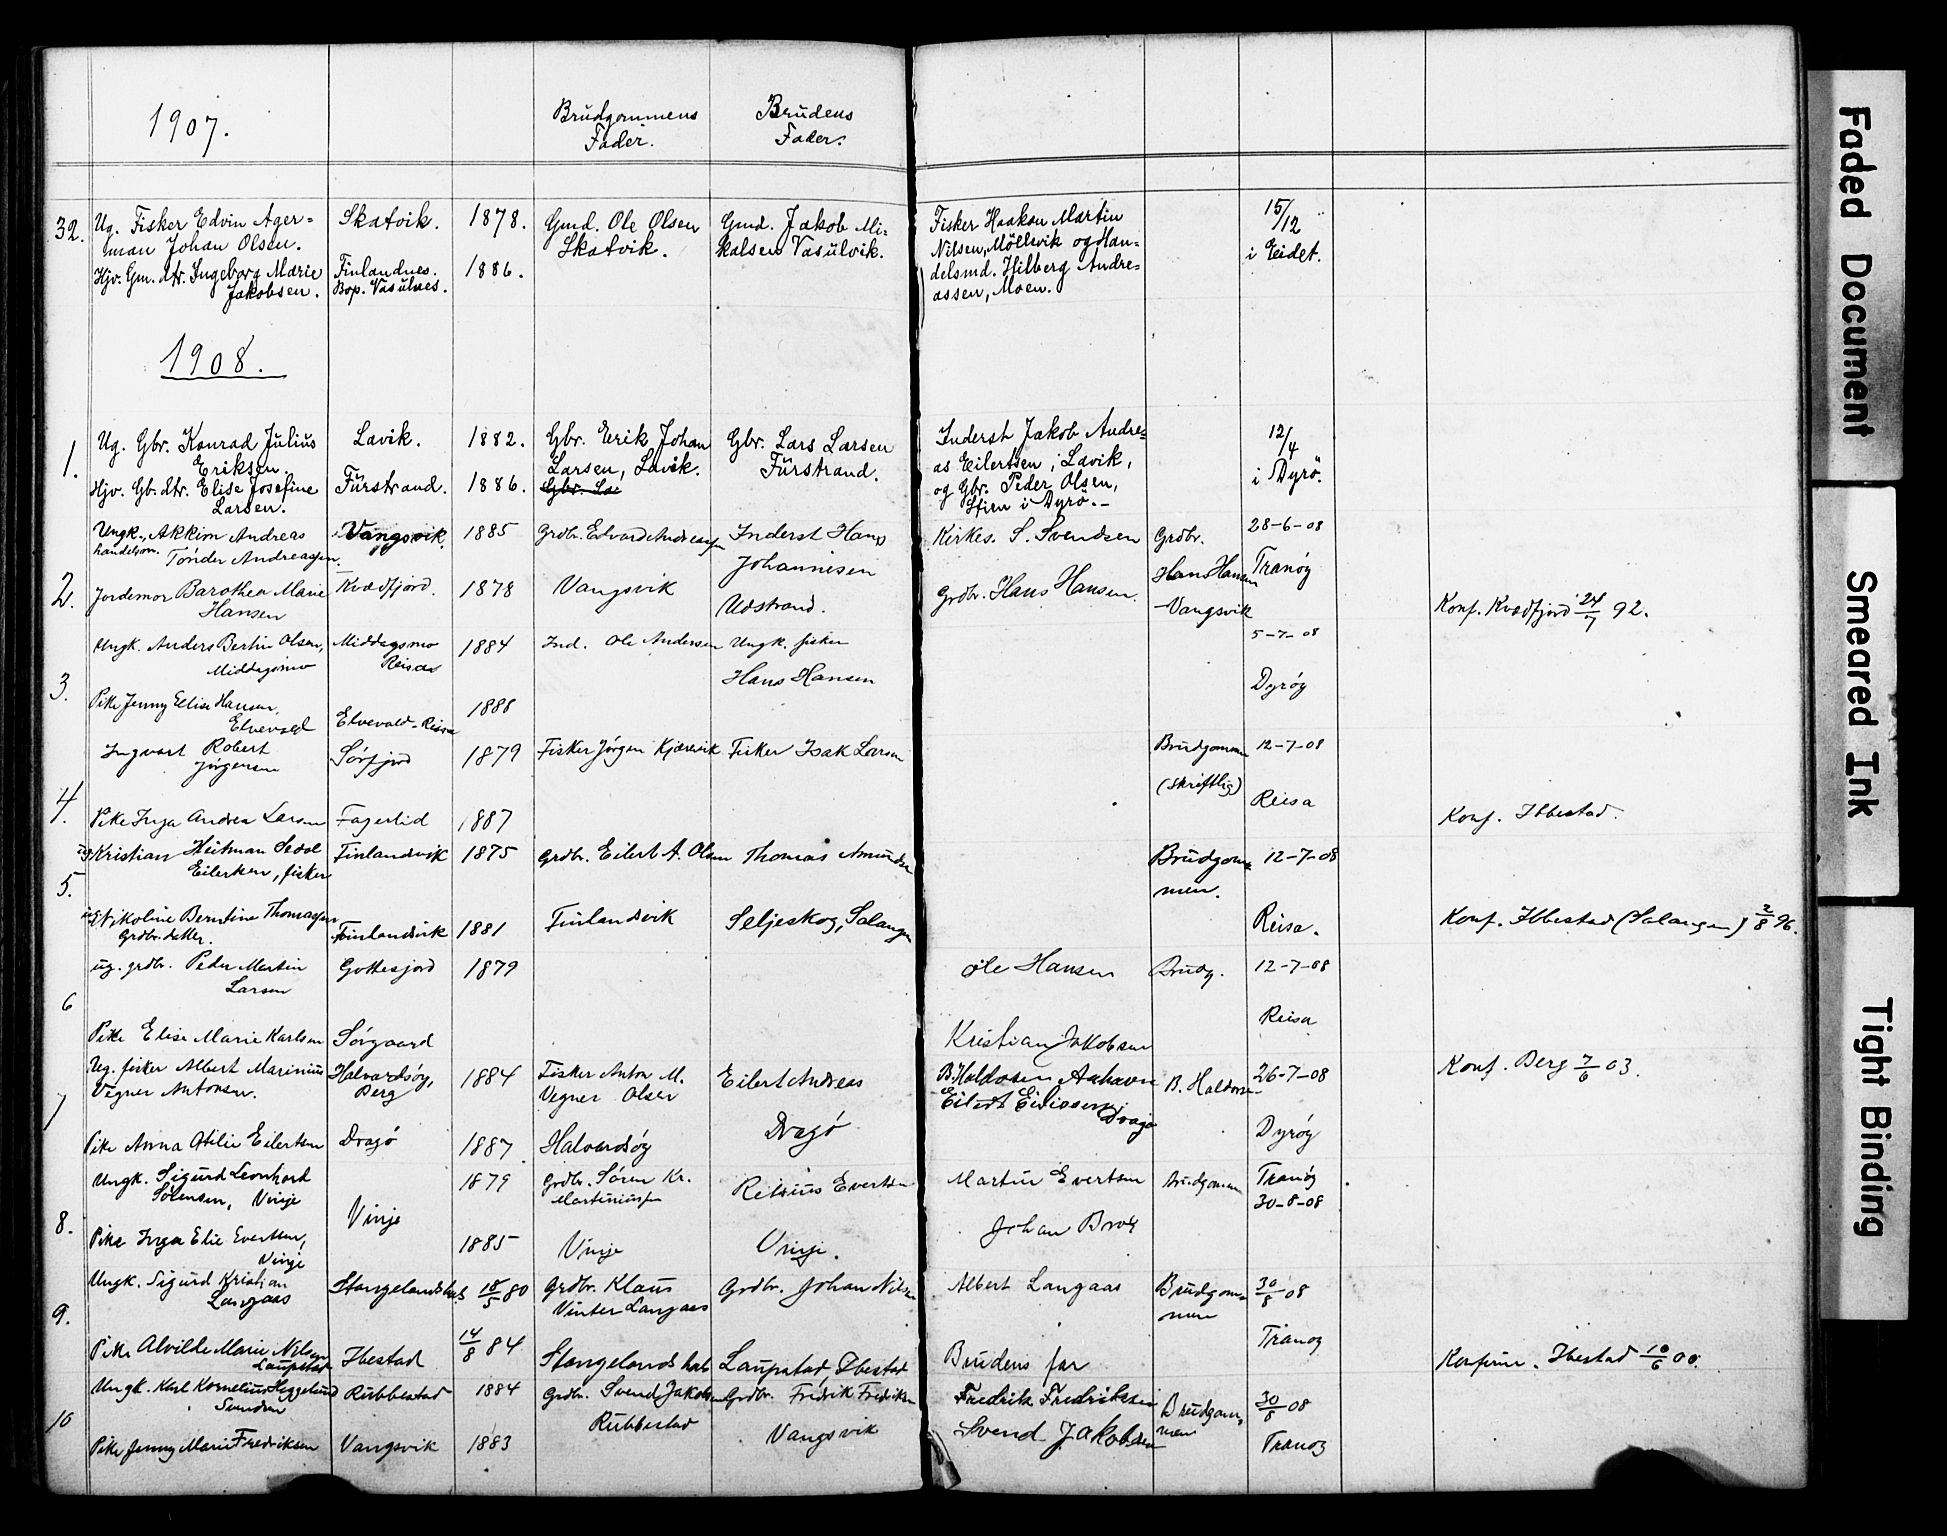 1907.
Brudgommens
Fader.
Brudens
Fader.
32.
Ug. Fisker Edvin Ager=
man Johan Olsen.
Hjv. Gm. dtr. Ingeborg Marie
Jakobsen.
Skatvik.
Finlandnes.
Bop. Vasulnes.
1878.
1886.
Gmd. Ole Olsen
Skatvik.
Gmd. Jakob Mi=
kalsen Vasulvik.
Fisker Haakon Martin
Nilsen, Möllevik og Han=
delsmd. Hilberg Andre=
assen, Moen.
15/12
i Eidet.
1908.
1.
Ug. Gbr. Konrad Julius
Eriksen.
Hjv. Gb. dtr. Elise Josefine
Larsen.
Lavik.
Fürstrand.
1882.
1886.
Gbr. Erik Johan
Larsen, Lavik.
Gbr. Lars Larsen
Fürstrand.
Inderst Jakob Andre=
as Eilertsen i Lavik,
og Gbr. Peder Olsen,
i Dyrö.-
12/4
i Dyrö.
2.
Ungk. Akkim Andreas
handelsm. Tønder Andreassen.
Jordemor Barothea Marie
Hansen
Vangsvik.
Kvædfjord.
1885
1878
Grdbr. Edvard Andreassen
Vangsvik
Inderst Hans
Johannesen
Udstrand.
Kirkes. S. Svendsen
Grdbr. Hans Hansen.
Grdbr.
Hans Hansen
Vangsvik
28-6-08
Tranöy
Konf. Kvædfjord 24/7 92.
3.
Ungk. Anders Bertin Olsen,
Middagsmo
Pike Jenny Elise Hansen,
Elvevold
Middagsmo
Reisa
Elvevold - Reisa
1884
1888
Ind. Ole Andersen
Ungk. fisker
Hans Hansen
5-7-08
Dyröy
4.
Ingvart Robert
Jörgensen
Pike Inga Andrea Larsen
Sörfjord
Fagerlid
1879
1887
Fisker Jörgen Kjærevik
Fisker Isak Larsen
Brudgommen
(skriftlig)
12-7-08
Reisa
Konf. Ibbestad.
5.
Kristian Heitman
Eilertsen, fisker
Nikoline Berntine Thomassen
Grdbr. datter.
Finlandsvik
Finlandsvik
1875
1881
Grdbr. Eilert A. Olsen
Finlandsvik
Thomas Amundsen
Seljeskog, Salangen
Brudgom=
men.
12-7-08
Reisa.
Konf. Ibbestad (Salangen) 2/8 96.
6
ug. grdbr. Peder Martin
Larsen
Pike Elise Marie Karlsen
Gottesjord
Sörgaard
1879
Ole Hansen
Kristian Jakobsen
Brudg.
12-7-08
Reisa
7
Ug. fisker Albert Marinius
Vegner Antonsen.
Pike Anna Otilie Eilertsen
Halvardsöy,
Berg
Dragö
1884
1887
Fisker Anton M.
Vegner Olsen
Halvardsöy
Eilert Andreas
Dragö
B. Haldosen
Eilert
Dragö
B. Haldosen
26-7-08
Dyröy
Konf. Berg 7/6 03.
8.
Ungk. Sigurd Leonhard
Sörensen, Vinje
Pike Inga Elie Evertsen,
Vinje
Vinje
1879
1885
Grdbr. Sören Kr.
Martiniussen
Vinje
Evertsen
Vinje.
Martin Evertsen
Johan
Brudgommen
Tranöy
30-8-08
9.
Ungk. Sigurd Kristian
Langaas
Pike Alvilde Marie Nilsen
Laupstad
Stangelandshals
Ibestad
18/5 80
14/8 84
Grdbr. Klaus
Vinter Langaas
Stangelandshals
Grdbr. Johan Nilsen
Laupstad Ibestad
Albert Langaas
Brudens far
Brudgom=
men
30/8 08
Tranöy
Konfirm. Ibestad 10/6 00.
10
Ungk. Karl Kornelius Heggelund
Svendsen
Pike Jenny Marie Fredriksen
Rubbestad
Vangsvik
1884
1883
Grdbr. Svend Jakobsen
Rubbestad
Grdbr. Fredrik Fredriksen
Vangsvik
Fredrik Fredriksen
Svend Jakobsen
Brudgom=
men
30/8 08
Tranöy
Faded Document
Smeared Ink
Tight Binding